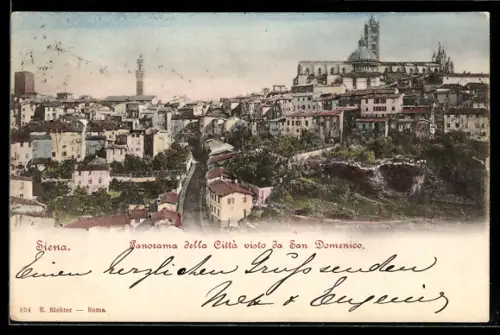 Siena. Panorama della Città visto da San Domenico.
Einen herzlichen Gruss senden
& Eugenie
624 E. Richter — Roma.